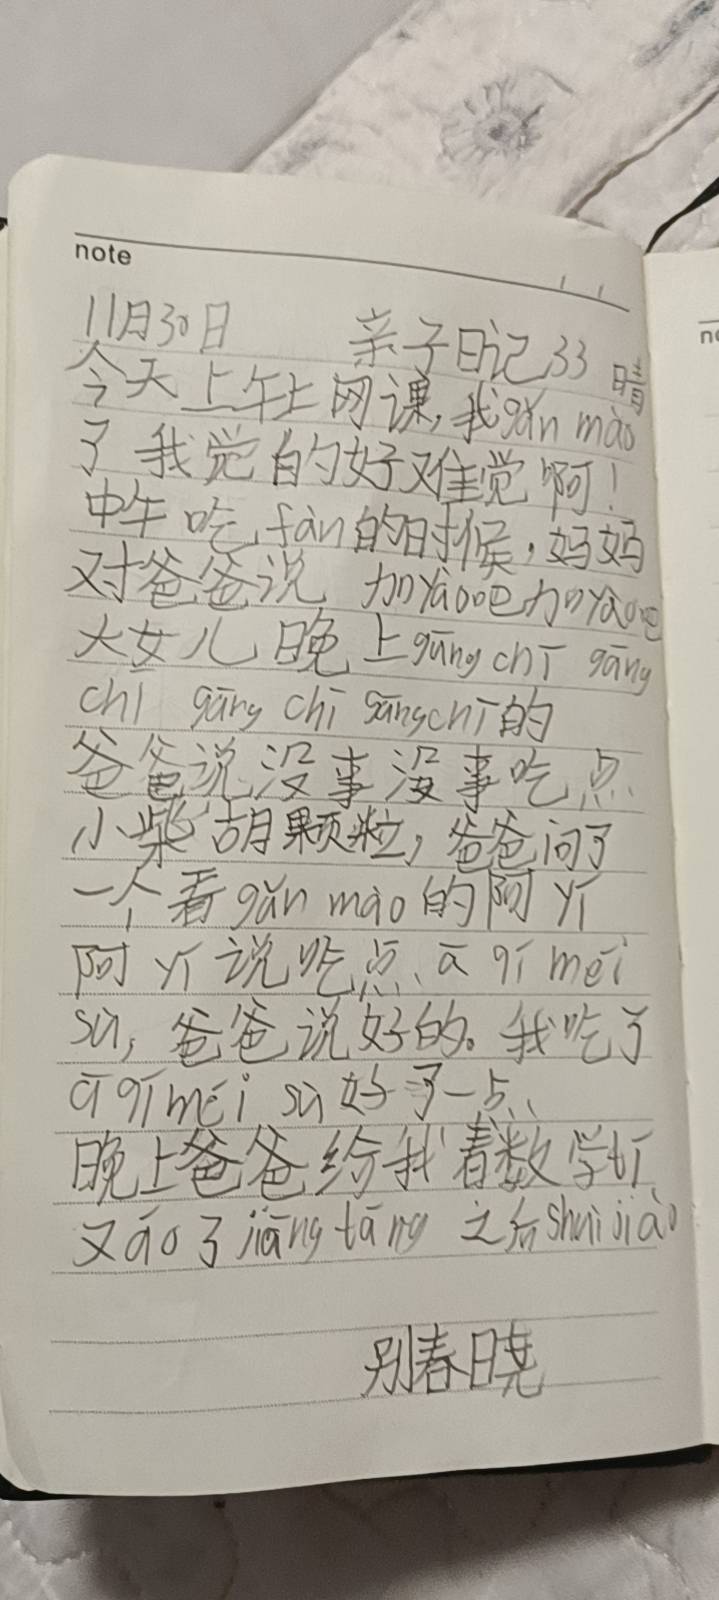 note
11月30日 亲子日记33 晴
今天上午上网课,我gǎn mào
了我觉的好难觉啊!
中午吃fàn的时候,妈妈
对爸爸说 加yào吧加yào吧
大女儿晚上gāng chī gāng
chī gāng chī gāngchī的
爸爸说没事没事吃点
小柴胡颗粒,爸爸问了
一个看gǎn mào的阿yí
阿yí说吃点ā qí méi
sù,爸爸说好的。我吃了
ā qí méi sù好了一点
晚上爸爸给我看数学tí
又áo了jiāng tāng 之后shuì jiào
别春晓